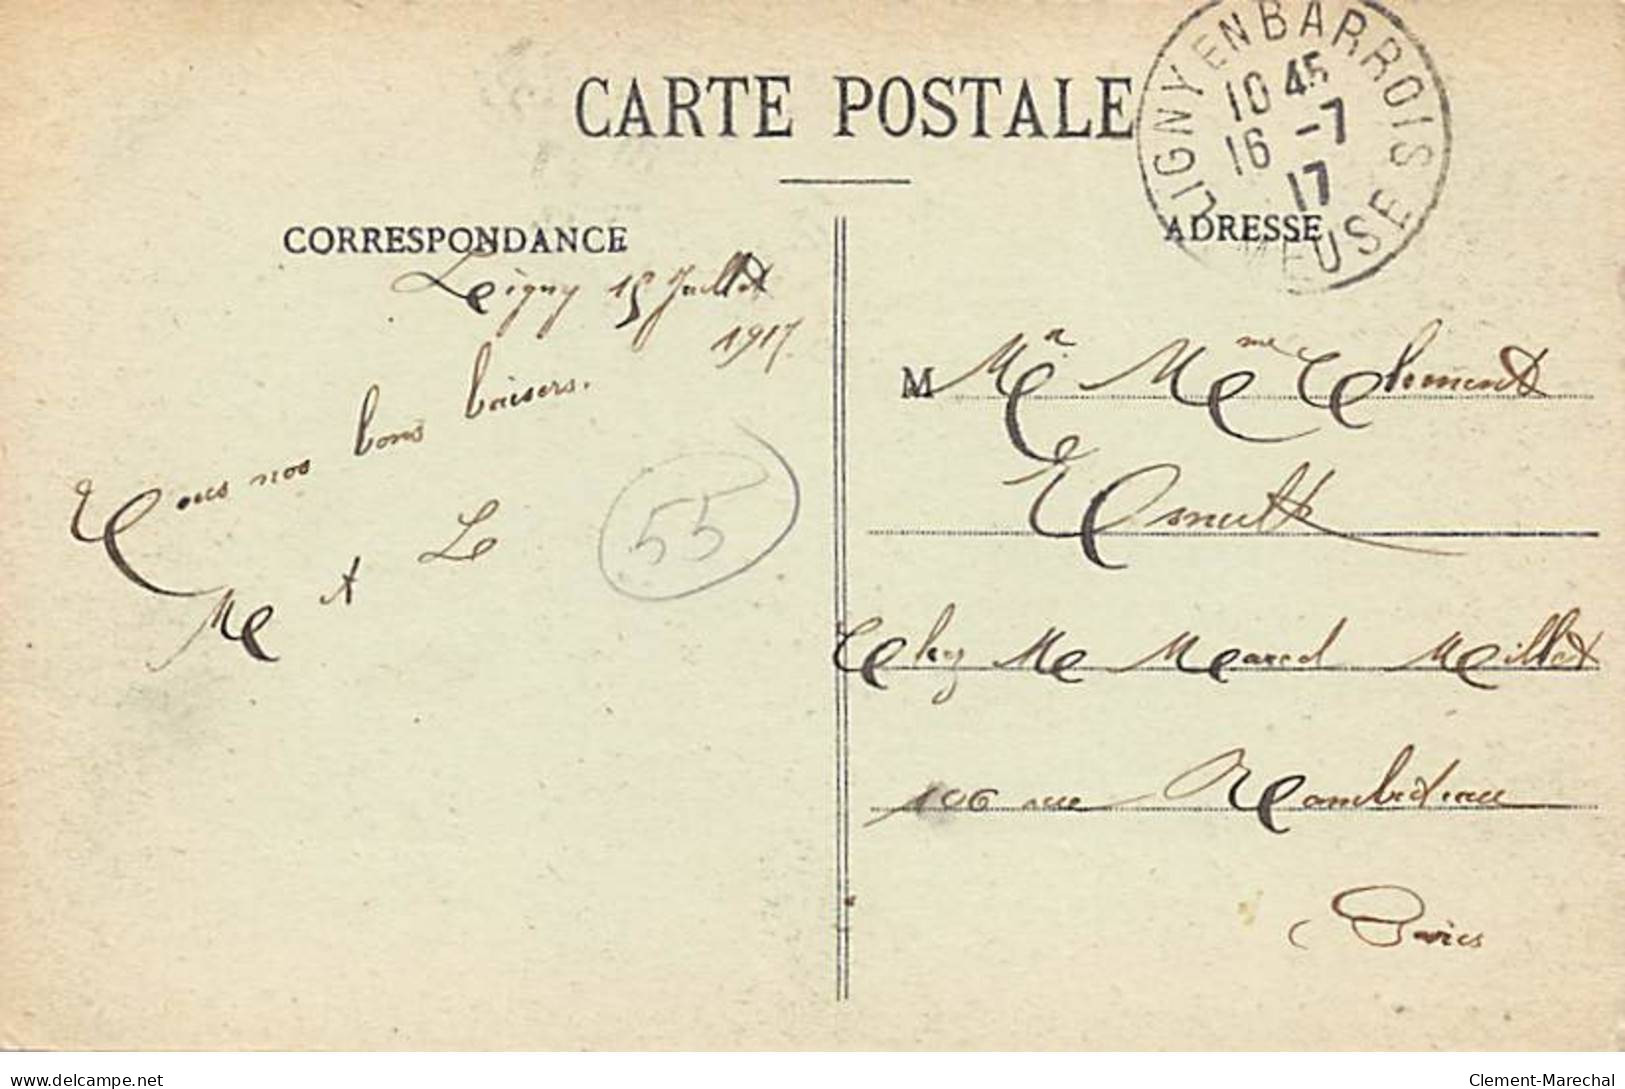 CARTE POSTALE
LIGNY EN BARROIS
10 45
16 -7
17
MEUSE
CORRESPONDANCE
Ligny 15 Juillet
1917
Tous nos bons baisers.
M et L
55
ADRESSE
M Mr Mme Clément
Esnult
Chez Me Marcel Millet
106 rue Rambuteau
Paris
delcampe.net
Clement-Marechal